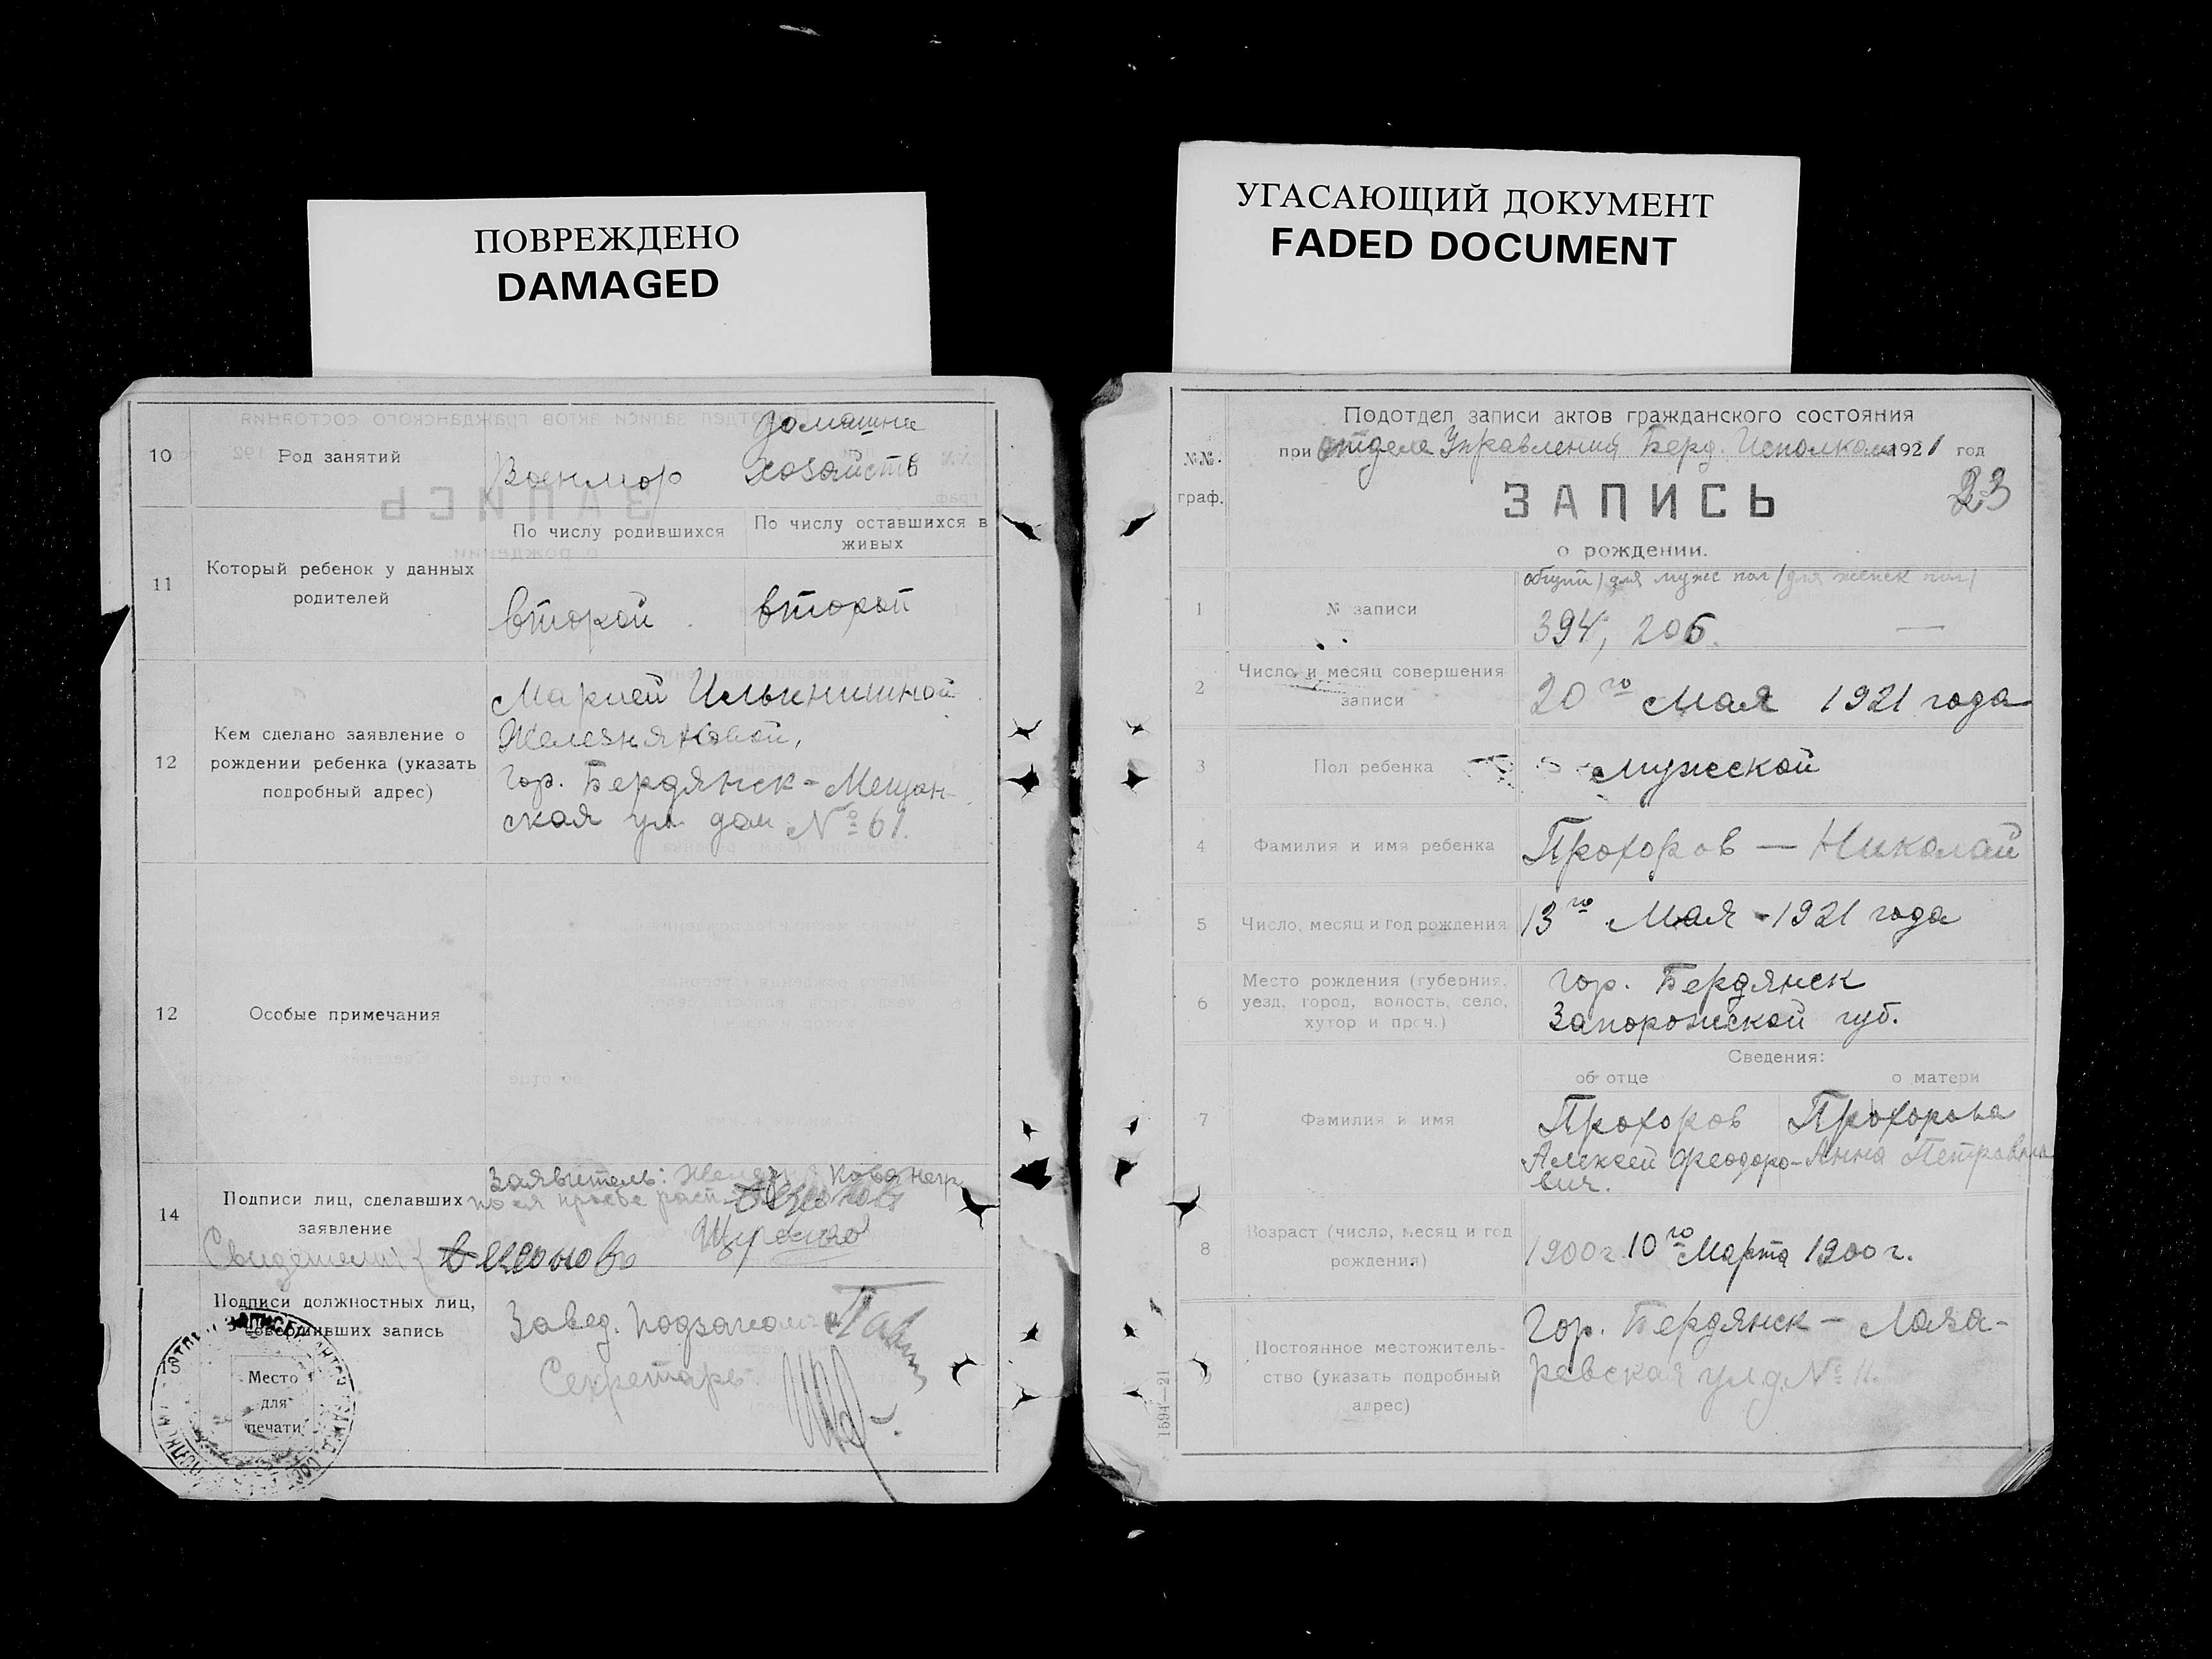 ПОВРЕЖДЕНО
DAMAGED
10
Род занятий
Военмор
домашнее
хозяйств
11
Который ребенок у данных
родителей
По числу родившихся
По числу оставшихся в
живых
второй
второй
12
Кем сделано заявление о
рождении ребенка (указать
подробный адрес)
Марией Ильинишной
Железняковой,
гор. Бердянск - Мещан-
ская ул. дом № 61.
12
Особые примечания
14
Подписи лиц, сделавших
заявление
Заявитель:
Свидетели
15
Подписи должностных лиц,
совершивших запись
Завед. Подзагсом
Секретарь
Место
для
печати
УГАСАЮЩИЙ ДОКУМЕНТ
FADED DOCUMENT
№№
граф.
Подотдел записи актов гражданского состояния
при отделе Управления Берд. Исполкома 1921 год
ЗАПИСЬ
23
о рождении.
1
№ записи
общий / для мужс пол / для женск пол /
394, 206. —
2
Число и месяц совершения
записи
20го Мая 1921 года
3
Пол ребенка
мужской
4
Фамилия и имя ребенка
Прохоров — Николай
5
Число, месяц и год рождения
13го Мая - 1921 года
6
Место рождения (губерния,
уезд, город, волость, село,
хутор и проч.)
гор. Бердянск
Запорожской губ.
Сведения:
об отце
о матери
7
Фамилия и имя
Прохоров
Алексей Феодоро-
вич.
Прохорова
Анна Петровна
8
Возраст (число, месяц и год
рождения)
1900 г.
10го Марта 1900 г.
9
Постоянное местожитель-
ство (указать подробный
адрес)
Гор. Бердянск - Лаза-
ревская ул. д. № 11.
1594—21